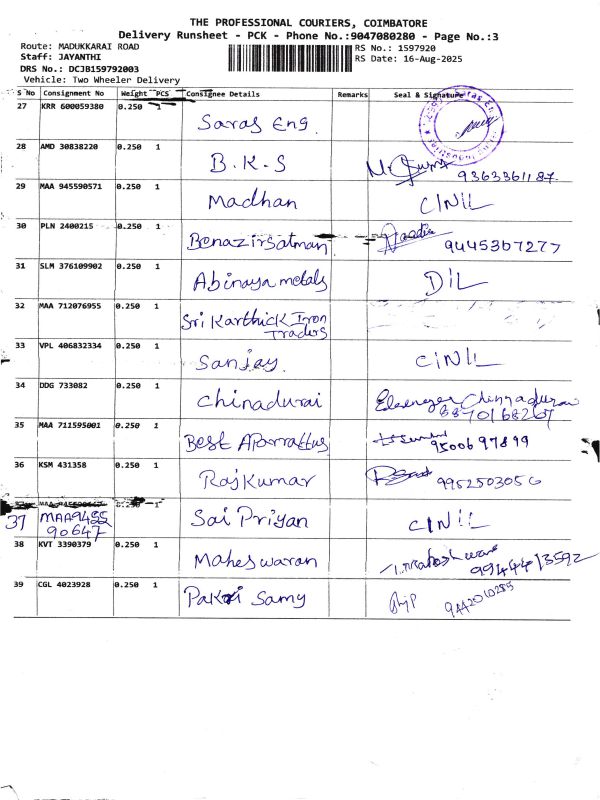 THE PROFESSIONAL COURIERS, COIMBATORE
Delivery Runsheet - PCK - Phone No.:9047080280 - Page No.:3
Route: MADUKKARAI ROAD
Staff: JAYANTHI
DRS No.: DCJB159792003
Vehicle: Two Wheeler Delivery
RS No.: 1597920
RS Date: 16-Aug-2025
S No Consignment No Weight PCS Consignee Details Remarks Seal & Signature
27 KRR 600059380 0.250 1 Saras Eng.
28 AMD 30838220 0.250 1 B.K.S 9363361187
29 MAA 945590571 0.250 1 Madhan CINIL
30 PLN 2400215 0.250 1 Benazirsatman 9445367277
31 SLM 376109902 0.250 1 Abinaya metals DIL
32 MAA 712076955 0.250 1 Sri Karthick Iron
Traders
33 VPL 406832334 0.250 1 Sanjay. CINIL
34 DDG 733082 0.250 1 Chinadurai Ebenezer Chinnadurai
8870168267
35 MAA 711595001 0.250 1 Best Aparrattus 9500697899
36 KSM 431358 0.250 1 Rajkumar 9952503056
37 MAA9455
90647 0.250 1 Sai Priyan CINIL
38 KVT 3390379 0.250 1 Maheswaran 9944413592
39 CGL 4023928 0.250 1 Pakri Samy 9442010285